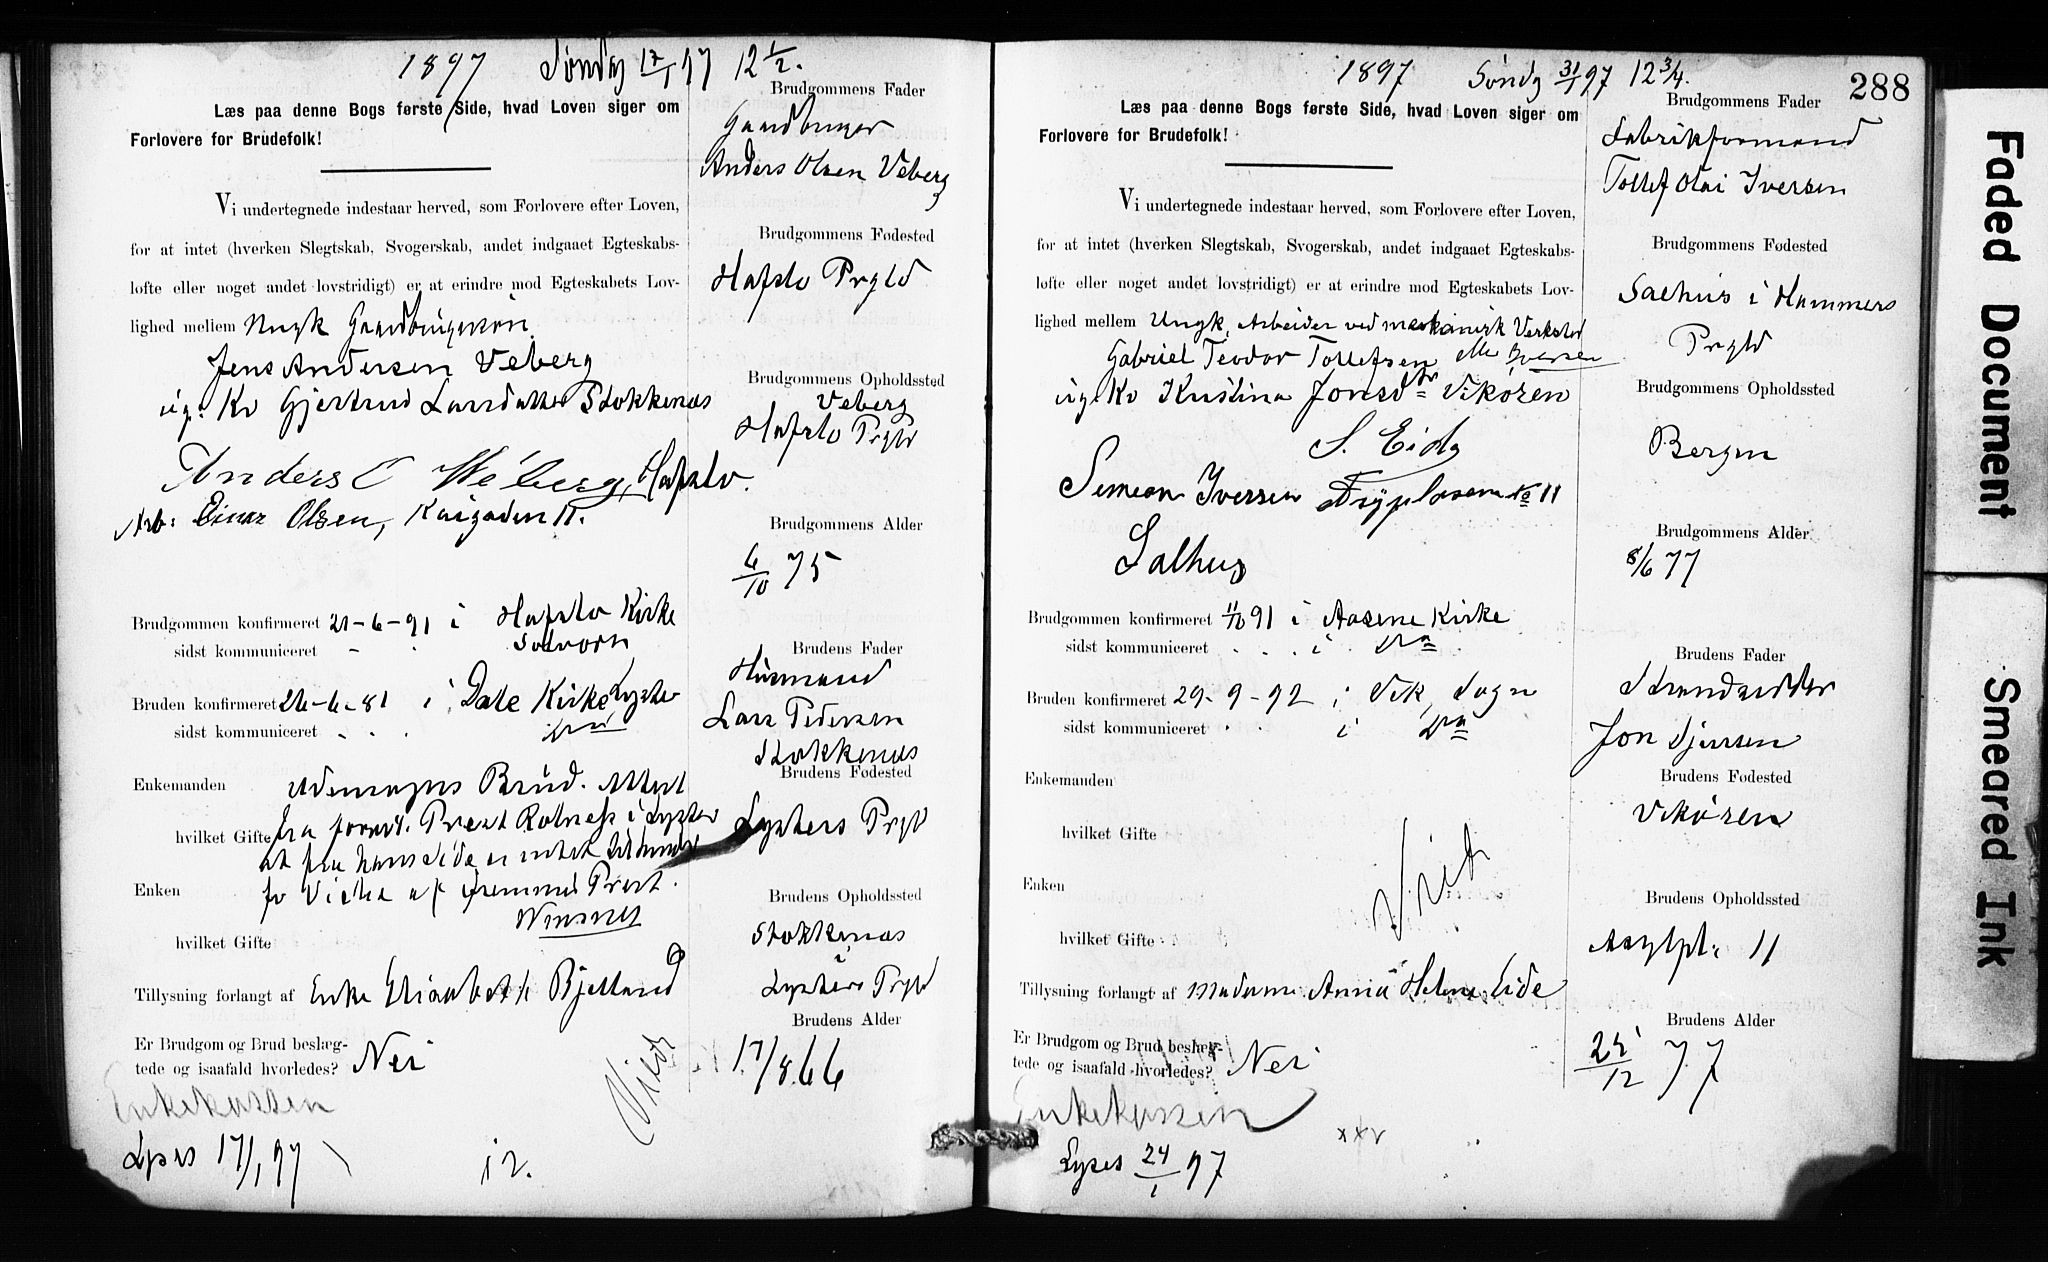 1897 Søndag 17/1 97 12 1/2.
Læs paa denne Bogs første Side, hvad Loven siger om
Forlovere for Brudefolk!
Vi undertegnede indestaar herved, som Forlovere efter Loven,
for at intet (hverken Slegtskab, Svogerskab, andet indgaaet Egteskabs-
løfte eller noget andet lovstridigt) er at erindre mod Egteskabets Lov-
lighed mellem Ungk Gaardbrugersøn
Jens Andersen Veberg
og: Kv Gjertrud Larsdatter Stokkenæs
Anders O Veberg, Hafslo.
Arb: Einar Olsen, Kaigaden 11.
Brudgommen konfirmeret 21-6-91 i Hafslo Kirke
sidst kommuniceret - . Solvorn
Bruden konfirmeret 26-6-81 i Dale Kirke Lyster
sidst kommuniceret - . .
Enkemanden Udensogns Brud. Attest
hvilket Gifte fra Prest Rotness i Lyster
at fra hans Side er intet
Enken for Vielse af fremmed Prest.
hvilket Gifte
Tillysning forlangt af Enke Elisabeth Bjelland
Er Brudgom og Brud beslæg-
tede og isaafald hvorledes? Nei
Enkekassen
Viet
Lyses 17/1 97
12.
Brudgommens Fader
Gaardbruger
Anders Olsen Veberg
Brudgommens Fødested
Hafslo Prgld
Brudgommens Opholdssted
Veberg
Hafslo Prgld
Brudgommens Alder
6/10 75
Brudens Fader
Husmand
Lars Pedersen
Stokkenæs
Brudens Fødested
Lysters Prgld
Brudens Opholdssted
Stokkenæs
Lysters Prgld
Brudens Alder
17/8 66
1897 Søndg 31/1 97 12 3/4.
288
Læs paa denne Bogs første Side, hvad Loven siger om
Forlovere for Brudefolk!
Vi undertegnede indestaar herved, som Forlovere efter Loven,
for at intet (hverken Slegtskab, Svogerskab, andet indgaaet Egteskabs-
løfte eller noget andet lovstridigt) er at erindre mod Egteskabets Lov-
lighed mellem Ungk, Arbeider ved mekanisk Verksted
Gabriel Teodor Tollefsen eller Iversen
og: Kv Kristina Jonsdtr Vikøren
S. Eide
Simeon Iversen Asylplassen No 11
Salhus
Brudgommen konfirmeret 11/10 91 i Aasene Kirke
sidst kommuniceret . . . i do
Bruden konfirmeret 29-9-92 i Vik, Sogn
sidst kommuniceret . . i do
Enkemanden
hvilket Gifte
Enken
Viet
hvilket Gifte
Tillysning forlangt af Madame Anna Helene Eide
Er Brudgom og Brud beslæg-
tede og isaafald hvorledes? Nei
Enkekassen
Lyses 24/1 97
Brudgommens Fader
Fabrikformand
Tollef Olai Iversen
Brudgommens Fødested
Salhus i Hammers
Prgld
Brudgommens Opholdssted
Bergen
Brudgommens Alder
8/6 77
Brudens Fader
Strandsidder
Jon Sjursen
Brudens Fødested
Vikøren
Brudens Opholdssted
Asylpl. 11
Brudens Alder
22/12 77
Faded Document
Smeared Ink